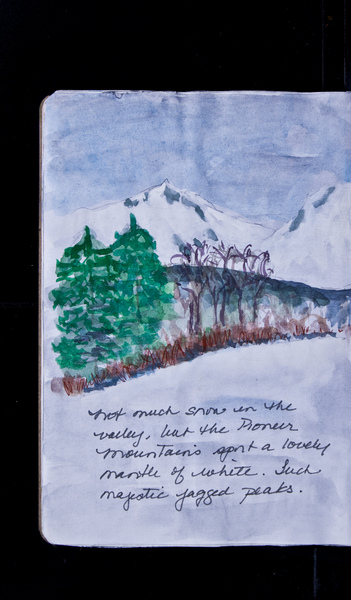 Not much snow in the
valley, but the Pioneer
Mountains sport a lovely
mantle of white. Such
majestic jagged peaks.